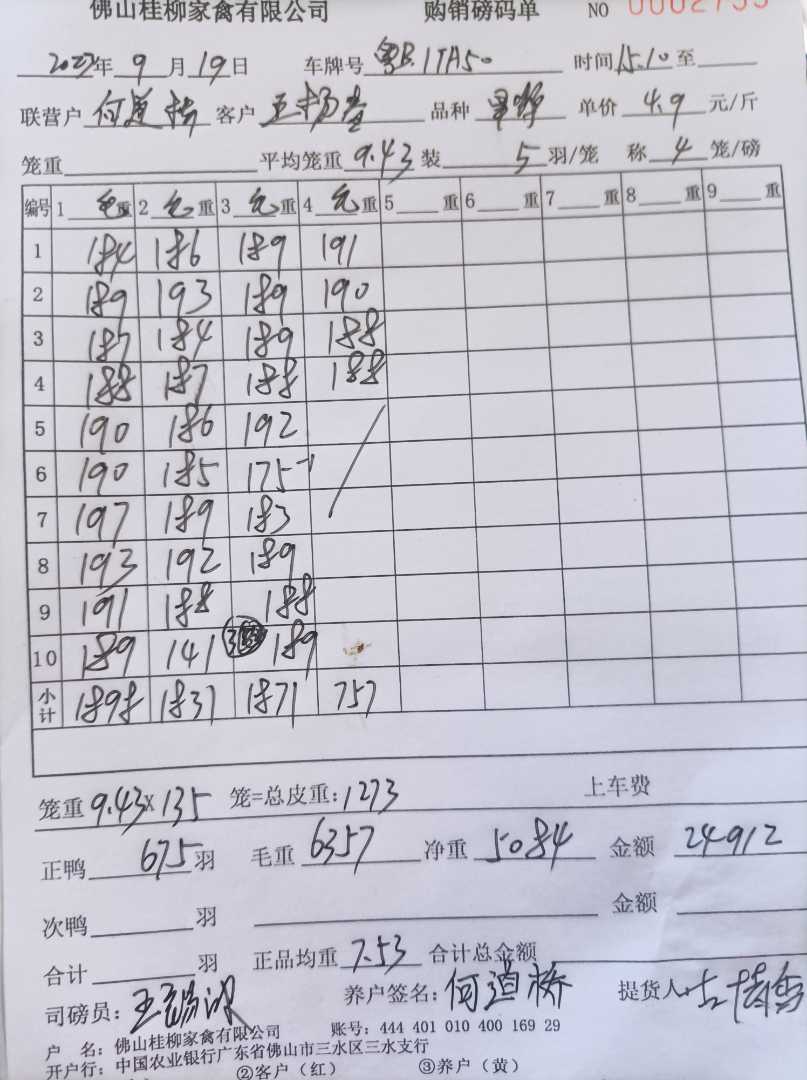 佛山桂柳家禽有限公司 购销磅码单 NO
2023年 9 月 19 日 车牌号 粤B.1TA50 时间 15.10 至
联营户 何道桥 客户 品种 单价 4.9 元/斤
笼重 平均笼重 9.43 装 5 羽/笼 称 4 笼/磅
编号 1 毛重 2 毛重 3 毛重 4 毛重 5 重 6 重 7 重 8 重 9 重
1 184 186 189 191
2 189 193 189 190
3 187 184 189 188
4 188 187 188 188
5 190 186 192
6 190 185 175-1
7 197 189 183
8 193 192 189
9 191 188 188
10 189 141 189
小计 1898 1837 1871 757
笼重 9.43x135 笼=总皮重:1273 上车费
正鸭 675 羽 毛重 6357 净重 5084 金额 24912
次鸭 羽 金额
合计 羽 正品均重 7.53 合计总金额
司磅员: 养户签名: 何道桥 提货人
户 名: 佛山桂柳家禽有限公司 账号: 444 401 010 400 169 29
开户行: 中国农业银行广东省佛山市三水区三水支行
②客户(红) ③养户(黄)